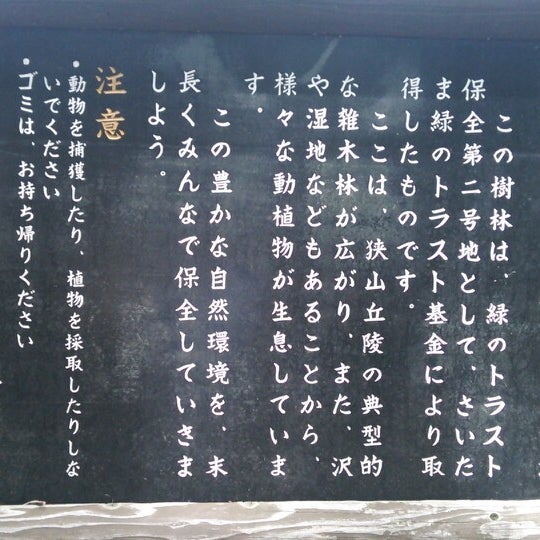 この樹林は、緑のトラスト
保全第二号地として、さいた
ま緑のトラスト基金により取
得したものです。
ここは、狭山丘陵の典型的
な雑木林が広がり、また、沢
や湿地などもあることから、
様々な動植物が生息していま
す。
この豊かな自然環境を、末
長くみんなで保全していきま
しょう。
注意
・動物を捕獲したり、植物を採取したりしな
いでください
・ゴミは、お持ち帰りください